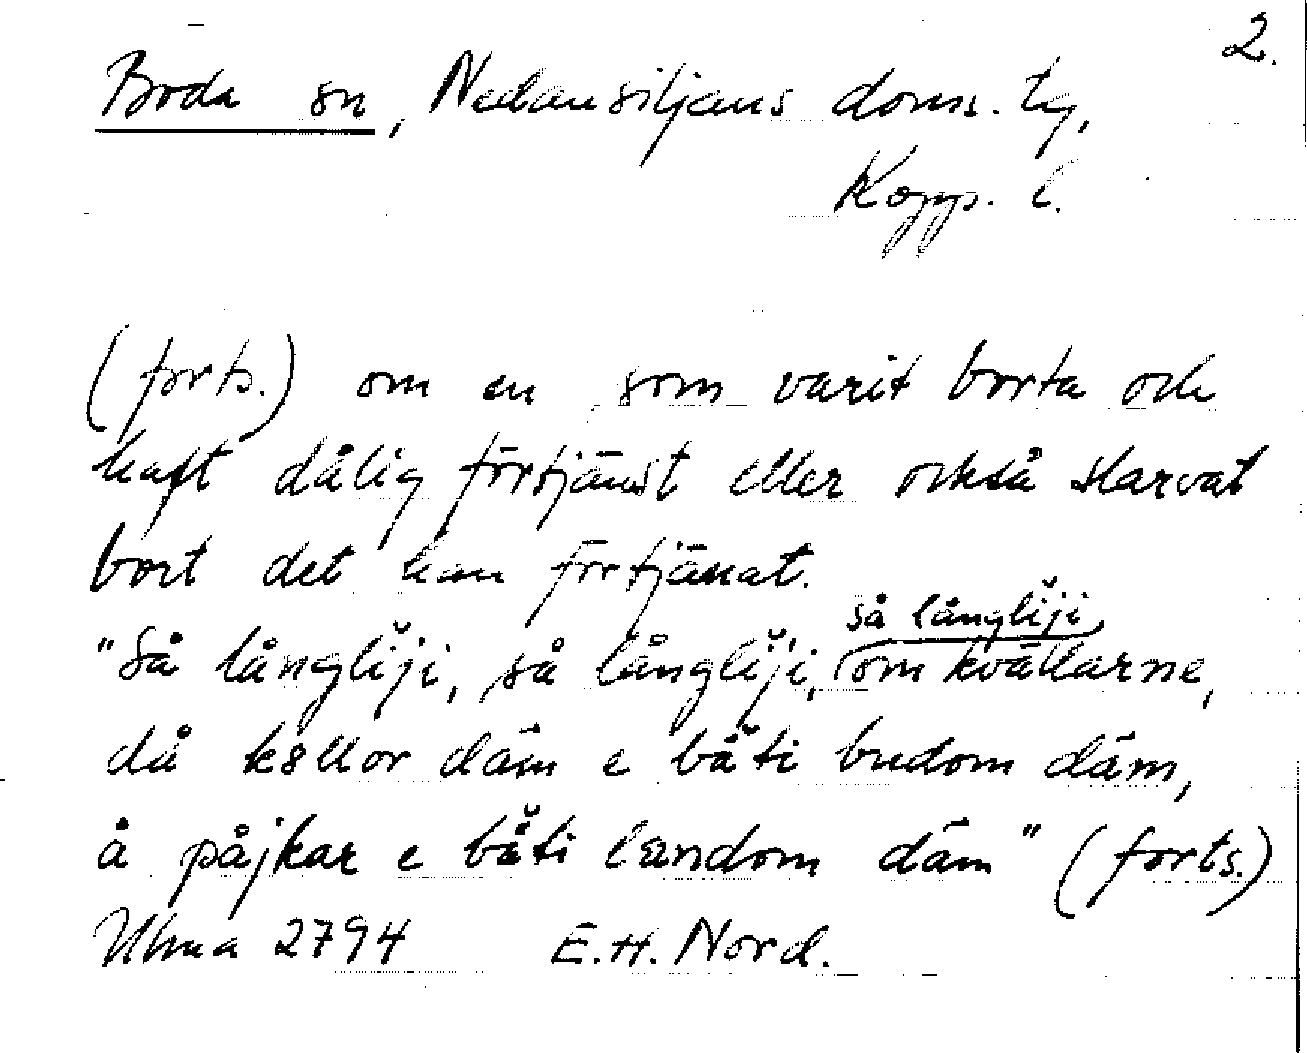 2.
Boda sn, Nedansiljans doms. tg,
Kopp. l.
(forts.) om en som varit borta och
haft dålig förtjänst eller också slarvat
bort det han förtjänat.
så långlĭji,
"Så långlĭji, så långlĭji, om kvällarne,
då ksllor däm e båti budom däm,
å påjkar e båti landom däm" (forts.)
Ulma 2794 E.H. Nord.